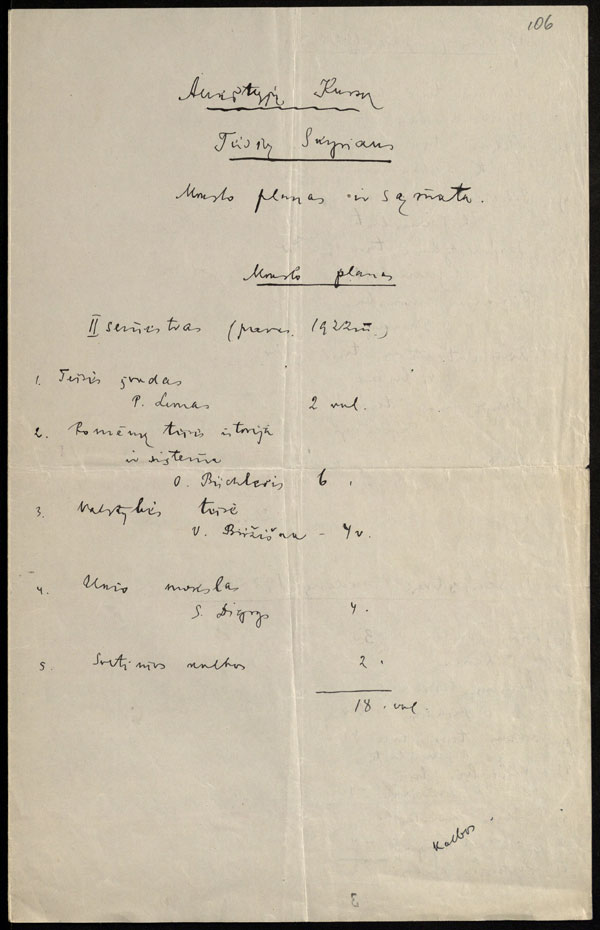 106
Aukštųjų Kursų
Teisių Skyriaus
Mokslo planas ir sąmata.
Mokslo planas
II semestras (pavas. 1922 m.)
1. Teisės
P. Lemas 2 val.
2. Romėnų teisės istorija
ir sistema
O. Büchleris 6
3. Valstybės teisė
V. Biržiška – 4 v.
4. Ūkio mokslas
S. Digrys 4.
5. Svetimos kalbos 2.
18. val
Kalbos